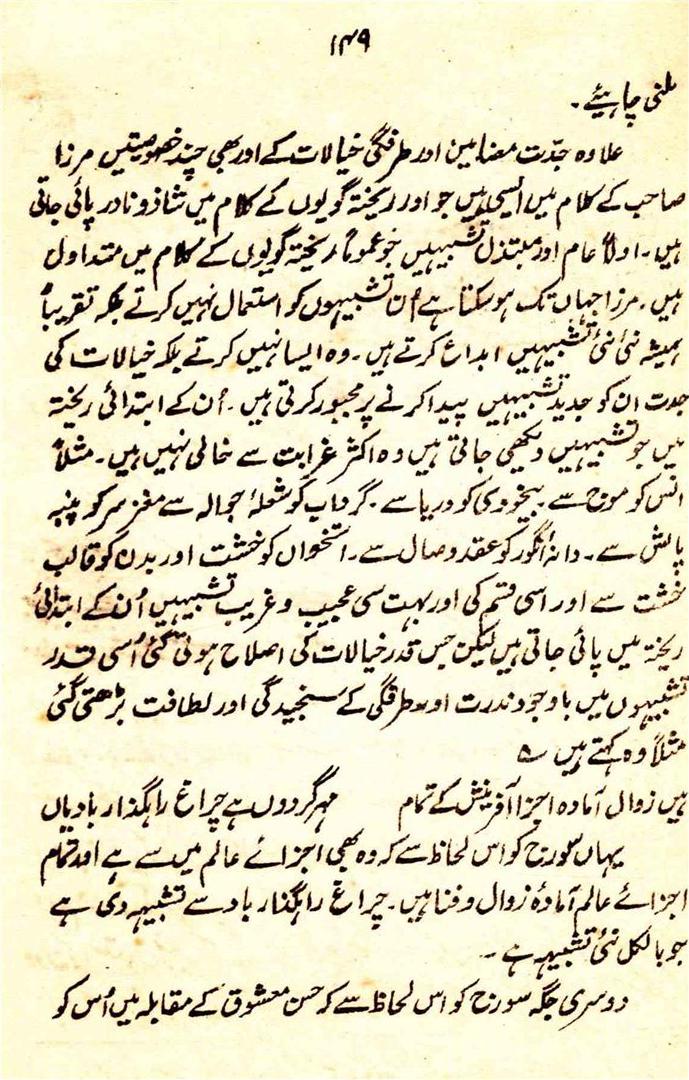 ۱۴۹
ملنی چاہیئے۔
علاوہ جدّت مضامین اور طرفگی خیالات کے اور بھی چند خصوصیتیں مرزا
صاحب کے کلام میں ایسی ہیں جو اور ریختہ گویوں کے کلام میں شاذ و نادر پائی جاتی
ہیں۔ اولاً عام اور مبتذل تشبیہیں جو عموماً ریختہ گویوں کے کلام میں متداول
ہیں۔ مرزا جہاں تک ہو سکتا ہے اُن تشبیہوں کو استعمال نہیں کرتے بلکہ تقریباً
ہمیشہ نئی نئی تشبیہیں ابداع کرتے ہیں۔ وہ ایسا نہیں کرتے بلکہ خیالات کی
جدت ان کو جدید تشبیہیں پیدا کرنے پر مجبور کرتی ہیں۔ اُن کے ابتدائی ریختہ
میں جو تشبیہیں دیکھی جاتی ہیں وہ اکثر غرابت سے خالی نہیں ہیں۔ مثلاً
انس کو موج سے بیخودی کو دریا سے۔ گرداب کو شعلۂ جوالہ سے مغز سر کو پنبہ
بالش سے۔ دانۂ انگور کو عقد وصال سے۔ استخواں کو خشت اور بدن کو قالب
خشت سے اور اسی قسم کی اور بہت سی عجیب و غریب تشبیہیں اُن کے ابتدائی
ریختہ میں پائی جاتی ہیں لیکن جس قدر خیالات کی اصلاح ہوتی گئی اُسی قدر
تشبیہوں میں باوجود ندرت اور طرفگی کے سنجیدگی اور لطافت بڑھتی گئی
مثلاً وہ کہتے ہیں ؎
ہیں زوال آمادہ اجزا آفرینش کے تمام مہر گردوں ہے چراغ راہگذار بادیاں
یہاں سورج کو اس لحاظ سے کہ وہ بھی اجزائے عالم میں سے ہے اور تمام
اجزائے عالم آمادۂ زوال و فنا ہیں۔ چراغ راہگذار باد سے تشبیہ دی ہے
جو بالکل نئی تشبیہ ہے۔
دوسری جگہ سورج کو اس لحاظ سے کہ حسن معشوق کے مقابلہ میں اُس کو